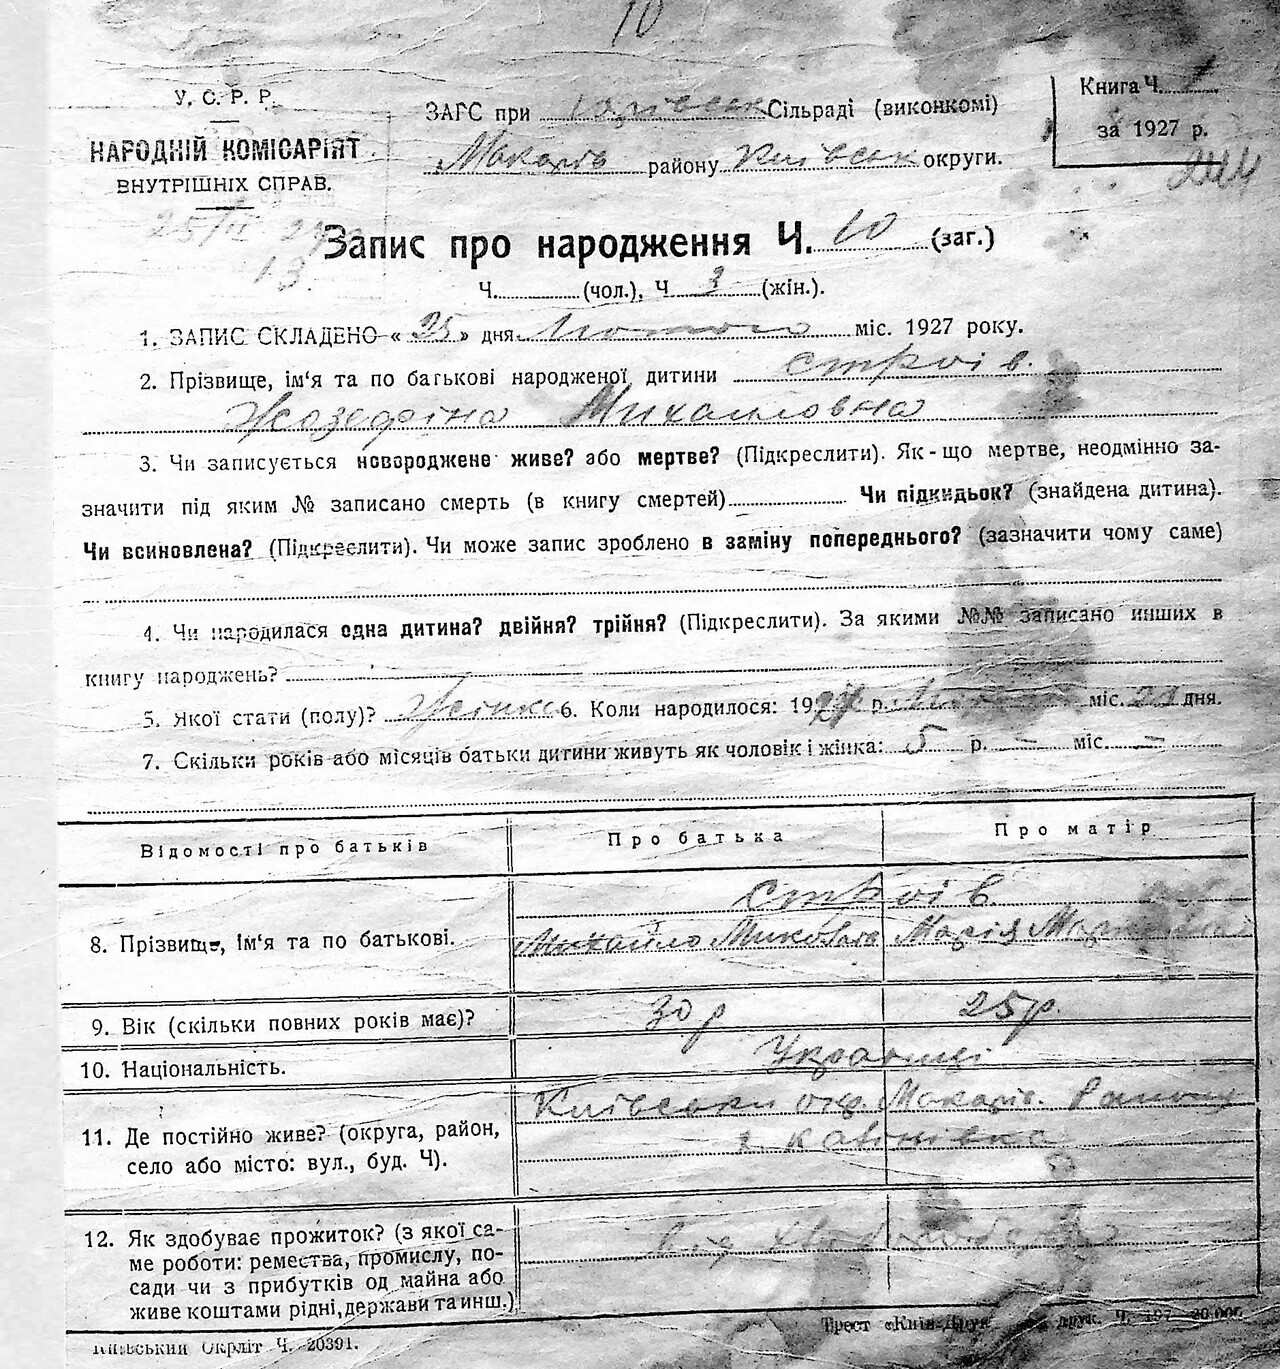 10
У. С. Р. Р.
НАРОДНІЙ КОМІСАРІЯТ
ВНУТРІШНІХ СПРАВ.
ЗАГС при Сільраді (виконкомі)
Макарів району Київськ округи.
Книга Ч.
за 1927 р.
244
25/II 27
13
Запис про народження Ч. 10 (заг.)
Ч. (чол.), Ч 3 (жін.).
1. ЗАПИС СКЛАДЕНО « 25 » дня Лютого міс. 1927 року.
2. Прізвище, ім'я та по батькові народженої дитини Строїв.
Жозефіна Михайловна
3. Чи записується новороджене живе? або мертве? (Підкреслити). Як-що мертве, неодмінно за-
значити під яким № записано смерть (в книгу смертей) Чи підкидьок? (знайдена дитина).
Чи всиновлена? (Підкреслити). Чи може запис зроблено в заміну попереднього? (зазначити чому саме)
4. Чи народилася одна дитина? двійня? трійня? (Підкреслити). За якими №№ записано инших в
книгу народжень?
5. Якої стати (полу)? Жінка 6. Коли народилося: 1927 р. міс. дня.
7. Скільки років або місяців батьки дитини живуть як чоловік і жінка: 5 р. – міс. –
Відомості про батьків Про батька Про матір
Строїв
8. Прізвище, ім'я та по батькові. Михайло Миколов Марія
9. Вік (скільки повних років має)? 30 р 25 р.
10. Національність. Українці
11. Де постійно живе? (округа, район,
село або місто: вул., буд. Ч).
Київськи окр. Макарів. Району
12. Як здобуває прожиток? (з якої са-
ме роботи: ремества, промислу, по-
сади чи з прибутків од майна або
живе коштами рідні, держави та инш.)
від хліборобства
Київський Окрліт Ч. 20391.
Трест «Київ-Друк» друк. Ч. 197–20.000